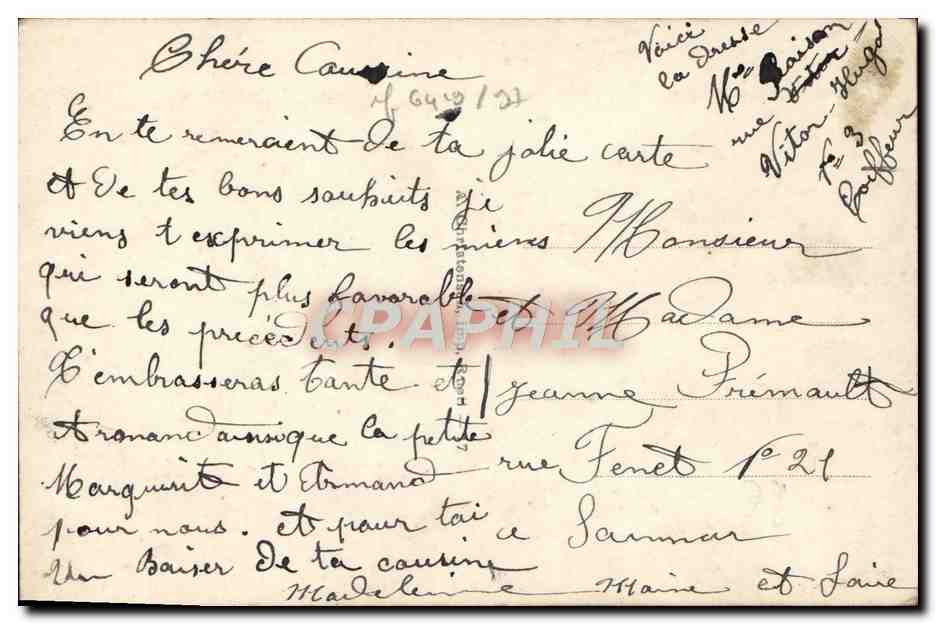 Chére Caussine
En te remerciant de ta jolie carte
et de tes bons souhuits je
viens t exprimer les miens
qui seront plus favorable
que les précédents.
T'embrasseras tante et
Armand ainsique la petite
Marguerit et Armand
pour nous. et pour toi
un Baiser de ta cousine
Madeleinne
Voici
la dresse
Me Raison
rue Vitor
Vitor-Hugo
No 3
Coiffeur
Monsieur
et Madame
Jeanne Frémault
rue Fenet No 21
a Saumur
Maine et Loire
A. Christensen, Imp. Rouen
CPAPHIL